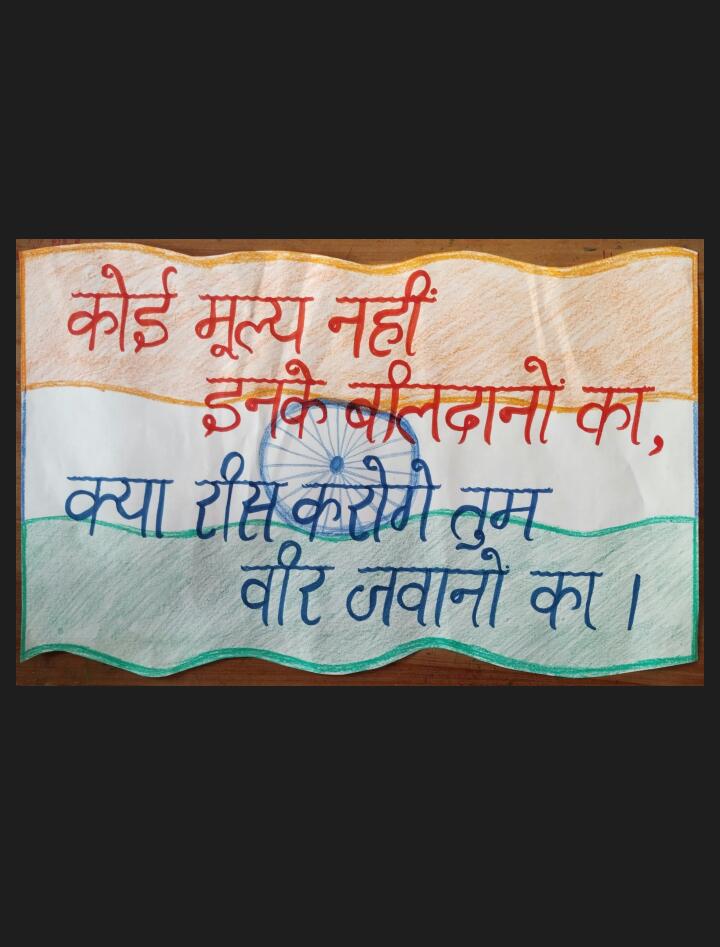 कोई मूल्य नहीं
इनके बलिदानों का,
क्या रीस करोगे तुम
वीर जवानों का ।